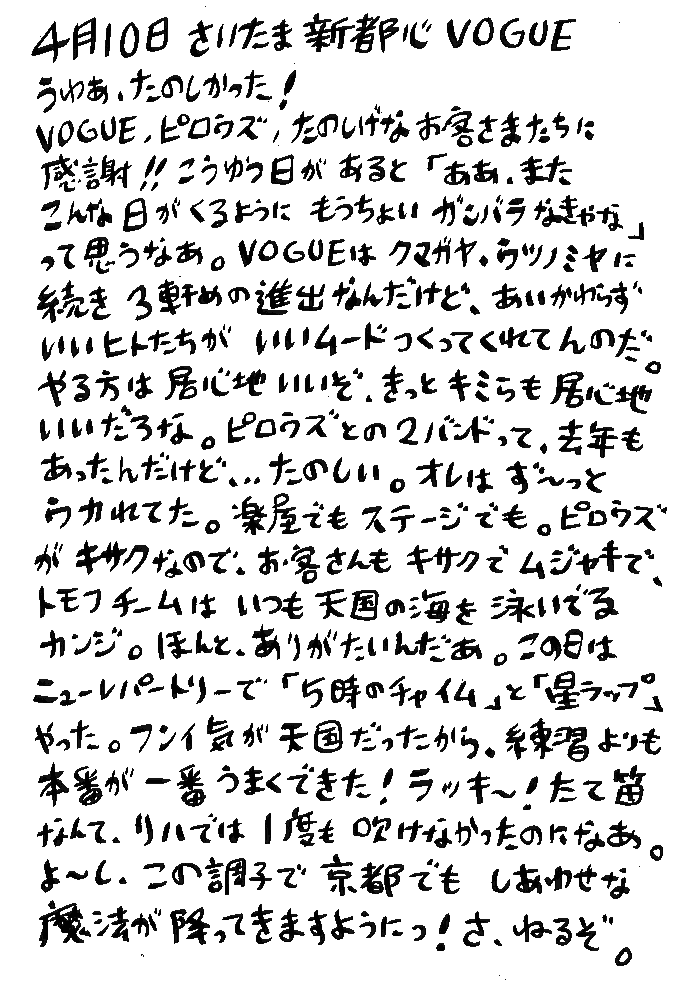 4月10日 さいたま新都心 VOGUE
うゆあ、たのしかった!
VOGUE、ピロウズ、たのしげなお客さまたちに
感謝!!こうゆう日があると「ああ、また
こんな日がくるように もうちょい ガンバラなきゃな」
って思うなあ。VOGUEは クマガヤ、ウツノミヤに
続き 3軒めの進出なんだけど、あいかわらず
いいヒトたちが いいムードつくってくれてんのだ。
やる方は居心地いいぞ、きっとキミらも居心地
いいだろな。ピロウズとの2バンドって、去年も
あったんだけど、…たのしい。オレは ず〜っと
ウカれてた。楽屋でもステージでも。ピロウズ
が キサクなので、お客さんも キサクで ムジャキで、
トモフチームは いつも 天国の海を 泳いでる
カンジ。ほんと、ありがたいんだあ。この日は
ニューレパートリーで「5時のチャイム」と「星ラップ」
やった。フンイ気が天国だったから、練習よりも
本番が一番うまくできた!ラッキ〜!たて笛
なんて、リハでは1度も吹けなかったのになあ。
よ〜し、この調子で 京都でも しあわせな
魔法が降ってきますようにっ!さ、ねるぞ。